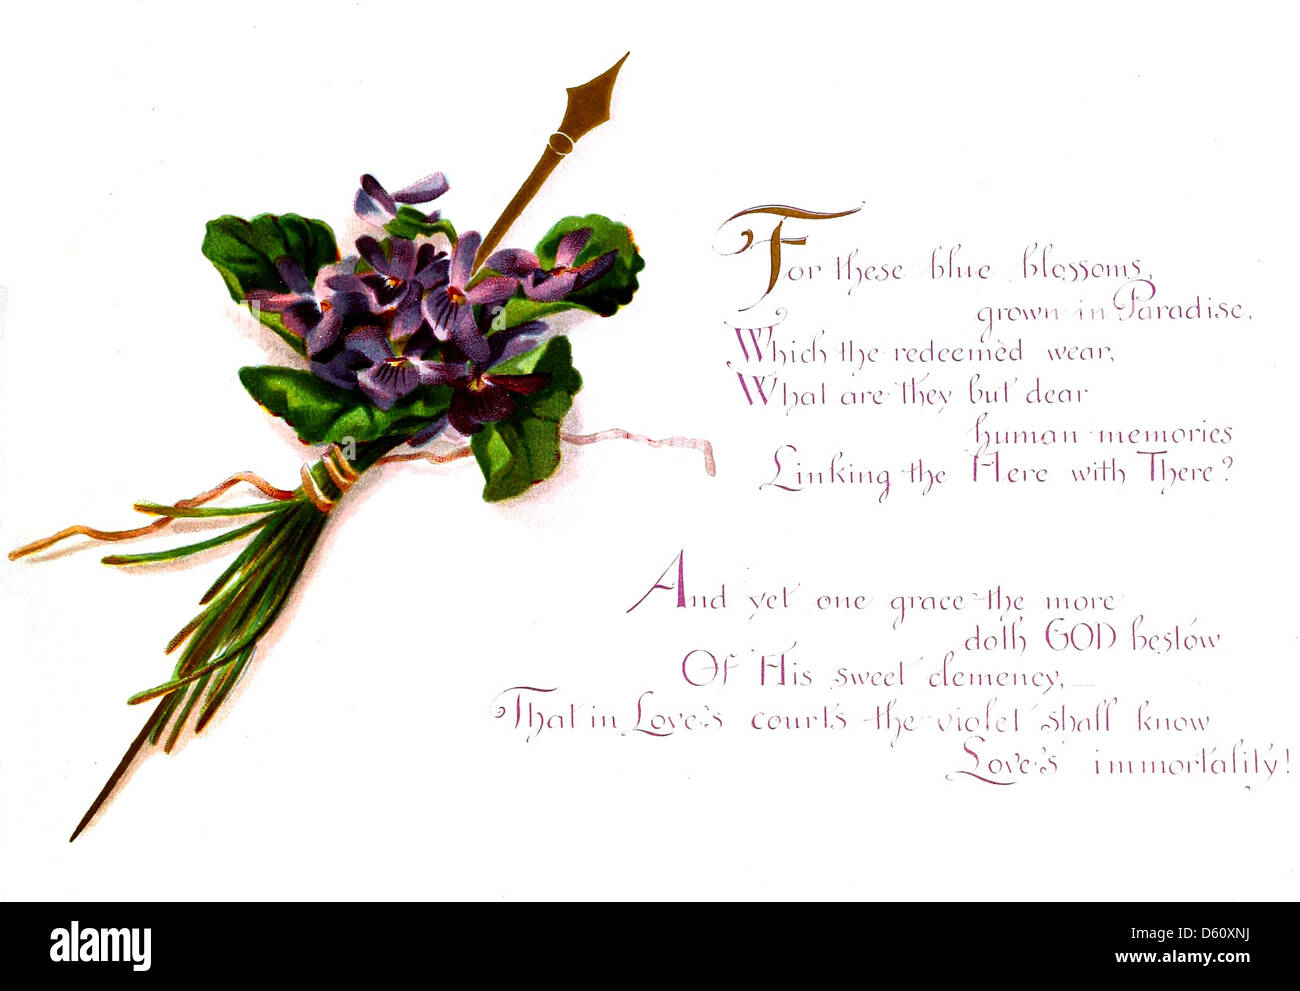 For these blue blossoms,
grown in Paradise,
Which the redeemèd wear,
What are they but dear
human memories
Linking the Here with There?
And yet one grace the more
doth GOD bestow
Of His sweet clemency,—
That in Love's courts the violet shall know
Love's immortality!
a
a
a
a
alamy
Image ID: D60XNJ
www.alamy.com